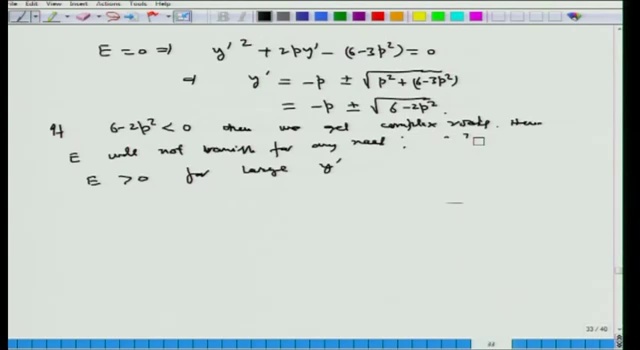 File Edit View Insert Actions Tools Help
E = 0 ⇒ y'² + 2py' − (6−3p²) = 0
⇒ y' = −p ± √(p² + (6−3p²))
= −p ± √(6−2p²).
If 6−2p² < 0 then we get complex roots. Then
E will not vanish for any real : " "
E > 0 for large y'
33 / 40
33